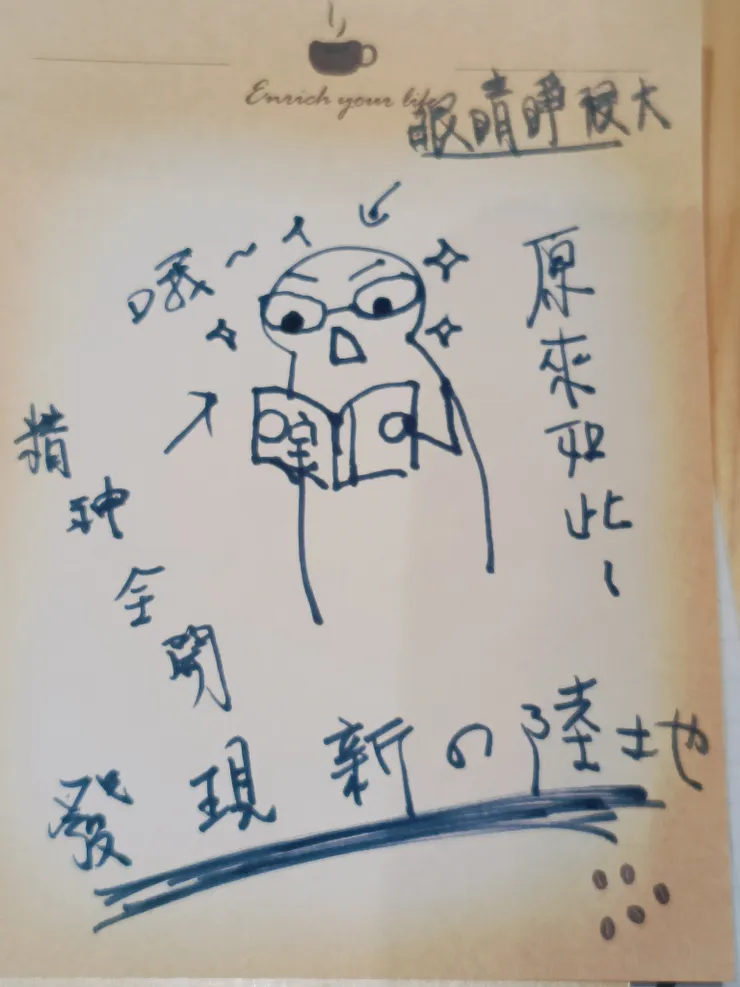 Enrich your life
眼睛睜很大
哦~
原來如此~
精神全開
發現新の陸地